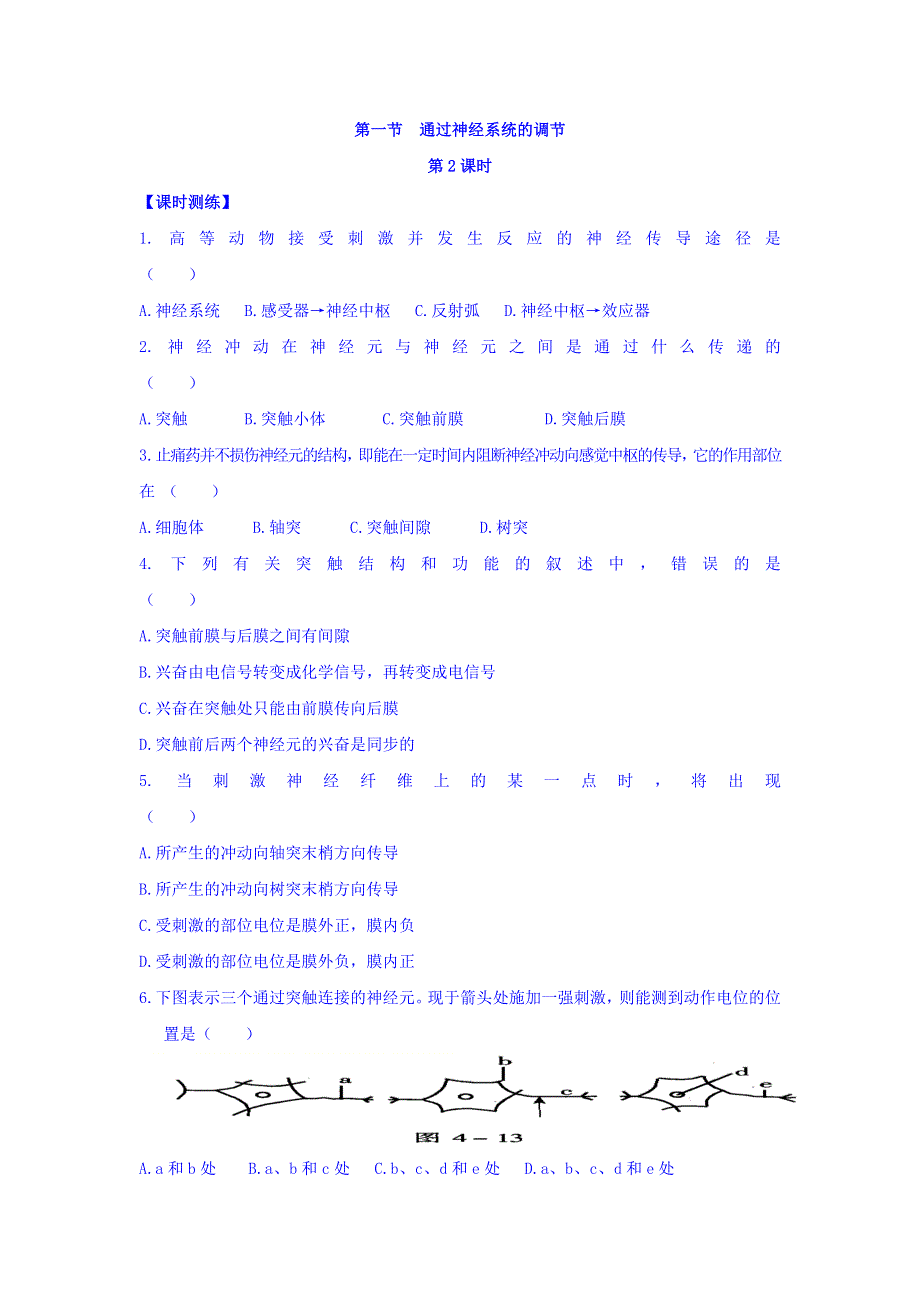 第一节　通过神经系统的调节
第2课时
【课时测练】
1.高等动物接受刺激并发生反应的神经传导途径是
（　　）
A.神经系统　B.感受器→神经中枢　C.反射弧　D.神经中枢→效应器
2.神经冲动在神经元与神经元之间是通过什么传递的
（　　）
A.突触　　　B.突触小体　　　C.突触前膜　　　　D.突触后膜
3.止痛药并不损伤神经元的结构，即能在一定时间内阻断神经冲动向感觉中枢的传导，它的作用部位
在（　　）
A.细胞体　　　B.轴突　　　C.突触间隙　　　D.树突
4.下列有关突触结构和功能的叙述中，错误的是
（　　）
A.突触前膜与后膜之间有间隙
B.兴奋由电信号转变成化学信号，再转变成电信号
C.兴奋在突触处只能由前膜传向后膜
D.突触前后两个神经元的兴奋是同步的
5.当刺激神经纤维上的某一点时，将出现
（　　）
A.所产生的冲动向轴突末梢方向传导
B.所产生的冲动向树突末梢方向传导
C.受刺激的部位电位是膜外正，膜内负
D.受刺激的部位电位是膜外负，膜内正
6.下图表示三个通过突触连接的神经元。现于箭头处施加一强刺激，则能测到动作电位的位
置是（　　）
a b c d e
图 4－13
A.a和b处　　B.a、b和c处　C.b、c、d和e处　D.a、b、c、d和e处